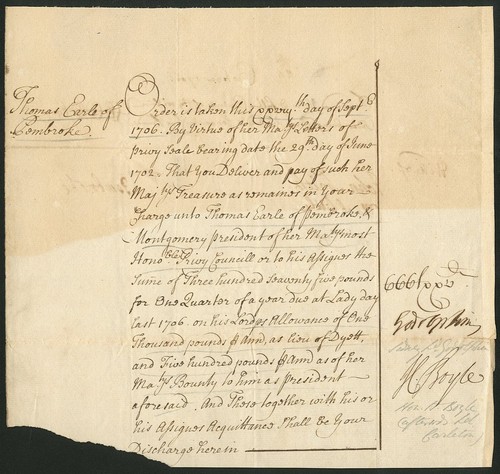 Thomas Earle of
Pembroke
Order is taken this xxviijth day of Sept
1706. By Virtue of her Maty's Letters of
Privy Seale bearing date the 29th day of June
1702. That You Deliver and pay of such her
Majtys Treasure as remaines in Your
Charge unto Thomas Earle of Pembroke, &
Montgomery President of her Matys most
Honoble Privy Councill or to his Assignes the
Sume of Three hundred Seaventy five pounds
for One Quarter of a year due at Lady day
last 1706. on his Lordps Allowance of One
Thousand pounds p Ann, as in lieu of Dyett,
and Five hundred pounds p Ann as of her
Matys Bounty to him as President
aforesaid. And These together with his or
his Assignes Acquittance Shall be Your
Discharge herein
Godolphin
H Boyle
Hon. H. Boyle
Carleton